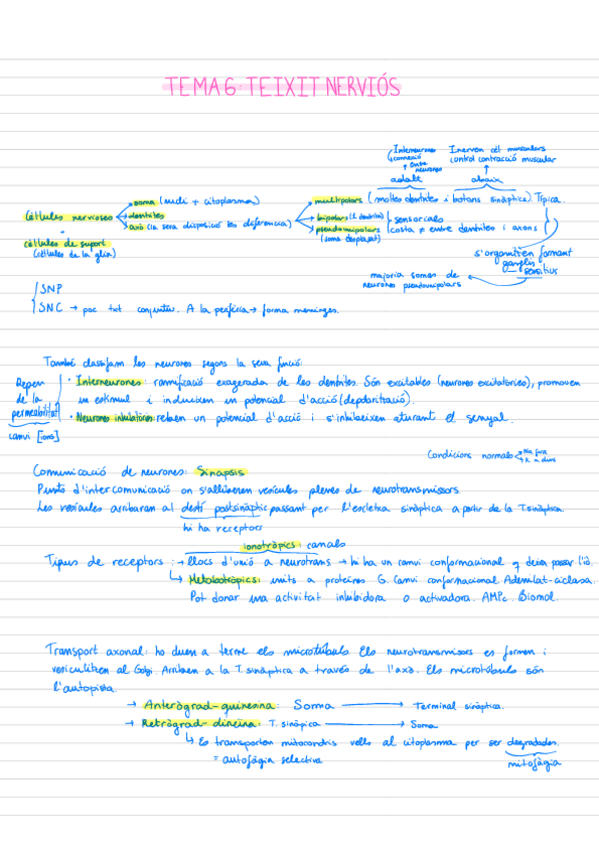 TEMA 6: TEIXIT NERVIÓS
Interneurones Inerven cèl musculars
connexió control contracció muscular
entre
neurones
adalt abaix
soma (nucli + citoplasma) multipolars (moltes dentrites i botons sinàptics). Típica.
Cèl·lules nervioses dentrites bipolars (1 dentrita) sensorials
axó (la seva disposició les diferencia) pseudounipolars costa ≠ entre dentrites i axons
(soma desplaçat)
cèl·lules de suport
(cèl·lules de la glia)
s'organitzen formant
ganglis
sensitius
majoria somes de
neurones pseudounipolars
SNP
SNC → poc txt conjuntiu. A la perifèria → forma meninges.
També classifiquem les neurones segons la seva funció:
Depen · Interneurones: ramificació exagerada de les dentrites. Són excitables (neurones excitatòries), promouen
de la un estímul i indueixen un potencial d'acció (depolarització).
permeabilitat · Neurones inhibitòries: reben un potencial d'acció i s'inhibeixen aturant el senyal.
canvi [ions]
Condicions normals Na fora
K a dins
Comunicació de neurones: Sinapsis
Punts d'intercomunicació on s'alliberen vesícules plenes de neurotransmissors.
Les vesícules arribaran al destí postsinàptic passant per l'escletxa sinàptica a partir de la T.sinàptica.
hi ha receptors
ionotròpics: canals
Tipus de receptors: → llocs d'unió a neurotrans → hi ha un canvi conformacional q deixa passar l'ió.
↳ Metabotròpics: units a proteïnes G. Canvi conformacional. Adenilat-ciclasa.
Pot donar una activitat inhibidora o activadora. AMPc. Biomol.
Transport axonal: ho duen a terme els microtúbuls. Els neurotransmissors es formen i
vesiculitzen al Golgi. Arriben a la T. sinàptica a través de l'axó. Els microtúbuls són
l'autopista.
→ Anterògrad-quinesina: Soma → Terminal sinàptica.
→ Retrògrad-dineïna: T. sinàpica → Soma
↳ Es transporten mitocondris vells al citoplasma per ser degradades.
= autofàgia selectiva mitofàgia